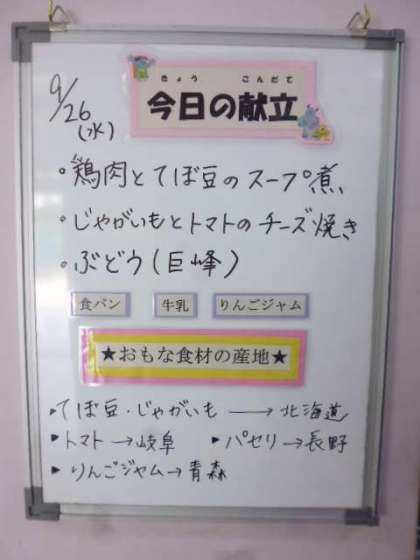 9/26
(水)
きょう こんだて
今日の献立
・鶏肉とてぼ豆のスープ煮
・じゃがいもとトマトのチーズ焼き
・ぶどう(巨峰)
食パン 牛乳 りんごジャム
★おもな食材の産地★
▶てぼ豆・じゃがいも → 北海道
▶トマト→岐阜 ▶パセリ→長野
▶りんごジャム→青森